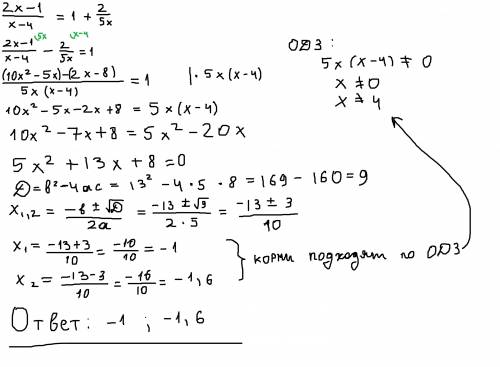 (2x-1)/(x-4) = 1 + 2/(5x)
(2x-1)/(x-4) - 2/(5x) = 1
5x
x-4
((10x²-5x)-(2x-8))/(5x(x-4)) = 1 | · 5x(x-4)
10x²-5x-2x+8 = 5x(x-4)
10x²-7x+8 = 5x²-20x
5x²+13x+8=0
D=b²-4ac = 13²-4·5·8=169-160=9
x₁,₂ = (-b±√D)/(2a) = (-13±√9)/(2·5) = (-13±3)/10
x₁ = (-13+3)/10 = -10/10 = -1
x₂ = (-13-3)/10 = -16/10 = -1,6
} корни подходят по ОДЗ
Ответ: -1 ; -1,6
ОДЗ:
5x(x-4) ≠ 0
x ≠ 0
x ≠ 4